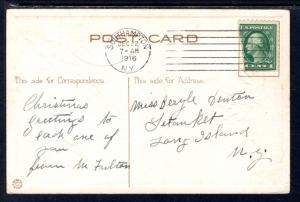 POST CARD
SOUTHAMPTON
DEC 22
7-AM
1916
N.Y.
U.S. POSTAGE
1 CENT 1
This side for Correspondence.
This side for Address.
Christmas
greetings to
each one of
you
from M. Fulton
Miss Beryle Denton
Setauket
Long Island
N.Y.